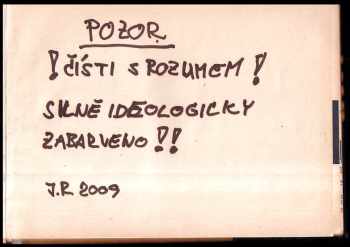 POZOR
! ČÍSTI S ROZUMEM !
SILNĚ IDEOLOGICKY
ZABARVENO !!
J.R 2009